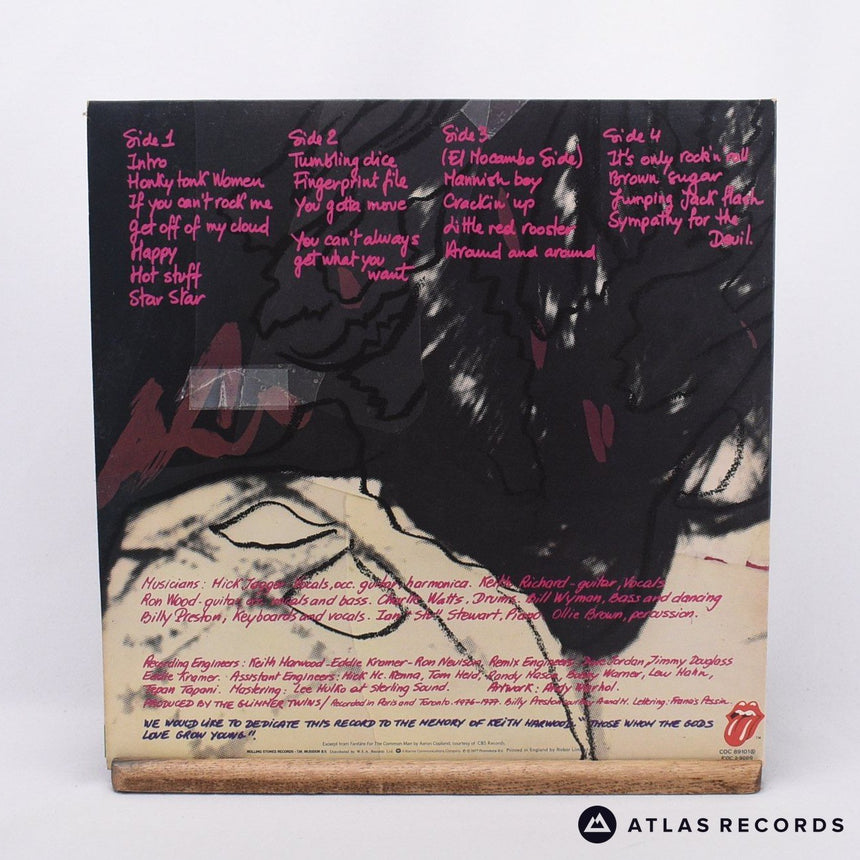 Side 1
Intro
Honky tonk Women
If you can't rock me
get off of my cloud
Happy
Hot stuff
Star Star
Side 2
Tumbling dice
Fingerprint file
You gotta move
You can't always
get what you
want
Side 3
(El Mocambo Side)
Mannish boy
Crackin' up
Little red rooster
Around and around
Side 4
It's only rock'n roll
Brown Sugar
Jumping Jack flash
Sympathy for the
Devil.
Musicians: Mick Jagger vocals, occ. guitar, harmonica. Keith Richard - guitar, Vocals
Ron Wood - guitar, vocals and bass. Charlie Watts, Drums. Bill Wyman, Bass and dancing
Billy Preston, Keyboards and vocals. Ian Stewart, Piano Ollie Brown, percussion.
Recording Engineers: Keith Harwood - Eddie Kramer - Ron Nevison, Remix Engineers Dave Jordan, Jimmy Douglass
Eddie Kramer: Assistant Engineers: Mick Mc. Kenna, Tom Heid, Randy Mason, Bobby Warner, Lew Hahn,
Tapani. Mastering: Lee Hulko at sterling Sound. Artwork: Andy Warhol.
PRODUCED BY THE GLIMMER TWINS / Recorded in Paris and Toronto. 1976-1977. Billy Preston courtesy A and M. Lettering: Pessin.
WE WOULD LIKE TO DEDICATE THIS RECORD TO THE MEMORY OF KEITH HARWOOD "THOSE WHOM THE GODS
LOVE GROW YOUNG".
Excerpt from Fanfare For The Common Man by Aaron Copland, courtesy of CBS Records.
ROLLING STONES RECORDS Distributed by W.E.A. Records Ltd. Printed in England by
TM
COC 89101
ATLAS RECORDS